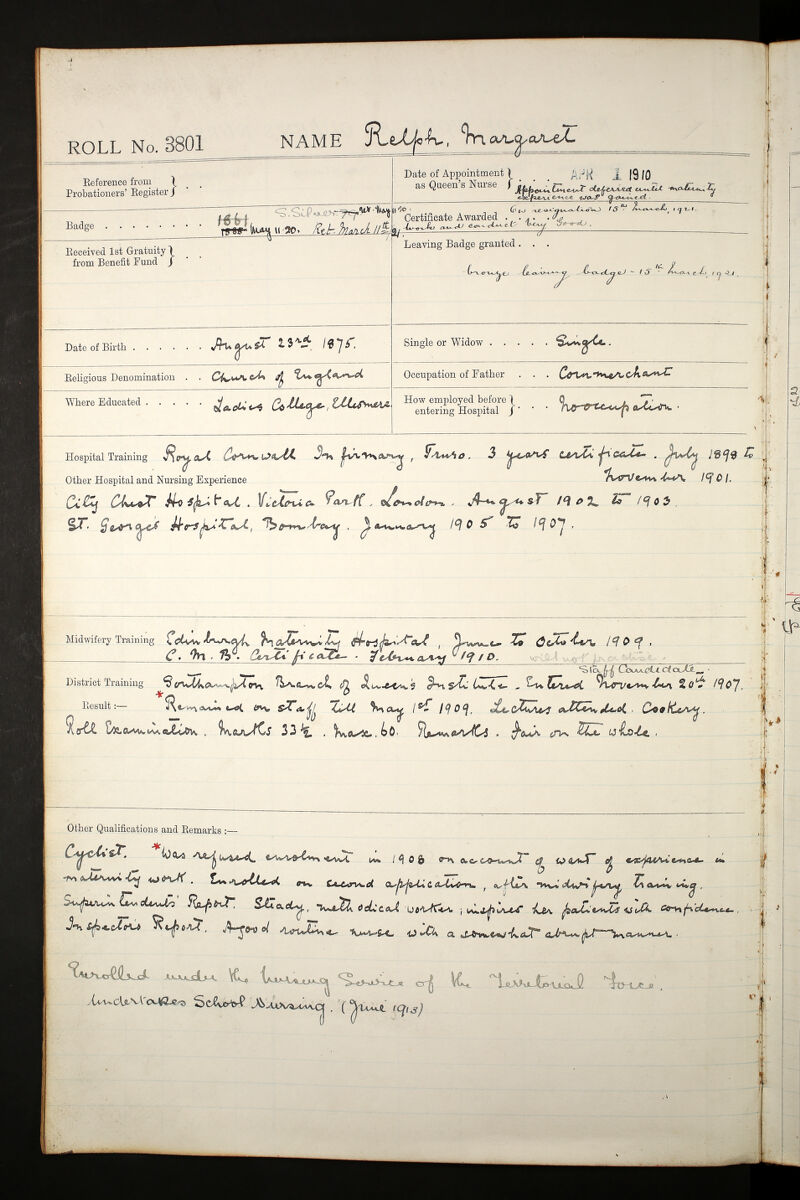 ROLL No. 3801 NAME Relph, Margaret
Reference from Probationers' Register } . .
Date of Appointment as Queen's Nurse } . . . APR 1 1910
Appointment deferred until maternity
experience was gained.
Badge . . . . . . . . 1661 May 11 20. Ret. March 11th 21.
S. Silver Ret. May 11 20.
Certificate Awarded . . . . On resignation 15th March, 1921.
Work and conduct very good.
Received 1st Gratuity from Benefit Fund } . .
Leaving Badge granted . . .
bronze leaving badge - 15th March, 1921.
Date of Birth . . . . . . August 23rd. 1875.
Single or Widow . . . . . Single.
Religious Denomination . . Church of England
Occupation of Father . . . Corn-merchant
Where Educated . . . . . Ladies College, Ellesmere
How employed before entering Hospital } . . . No-occupation.
Hospital Training Royal Cornwall Infirmary, Truro. 3 years certificate. July 1898 to
Other Hospital and Nursing Experience November 1901.
City Chest Hospital. Victoria Park. London. August 1902 to 1903.
St. Georges Hospital, Bombay. January 1905 to 1907.
Midwifery Training Edinburgh Maternity Hospital, June to October 1909.
C. M. B. Certificate. February 1910. will not practise.
Staff Candidate.
District Training Southampton Branch of Queen's Institute. Entered November 20th 1907.
Result:— * Remained on staff till May 1st 1909. Lectures attended. Cookery.
Roll Examination. Marks 33½. Max. 60. Remarks. Fair on the whole.
Other Qualifications and Remarks:—
Cyclist. * Was refused enrolment in 1908 on account of want of experience in
maternity work. Enrolled on second application, after midwifery training.
Superintendents' Report. Steady, methodical worker; inspires her patients with confidence.
Inspectors Report. A good routine nurse with a somewhat abrupt manner.
Enrolled under the Nursing Service of the Territorial Force.
Undertakes School Nursing. (June 1913)